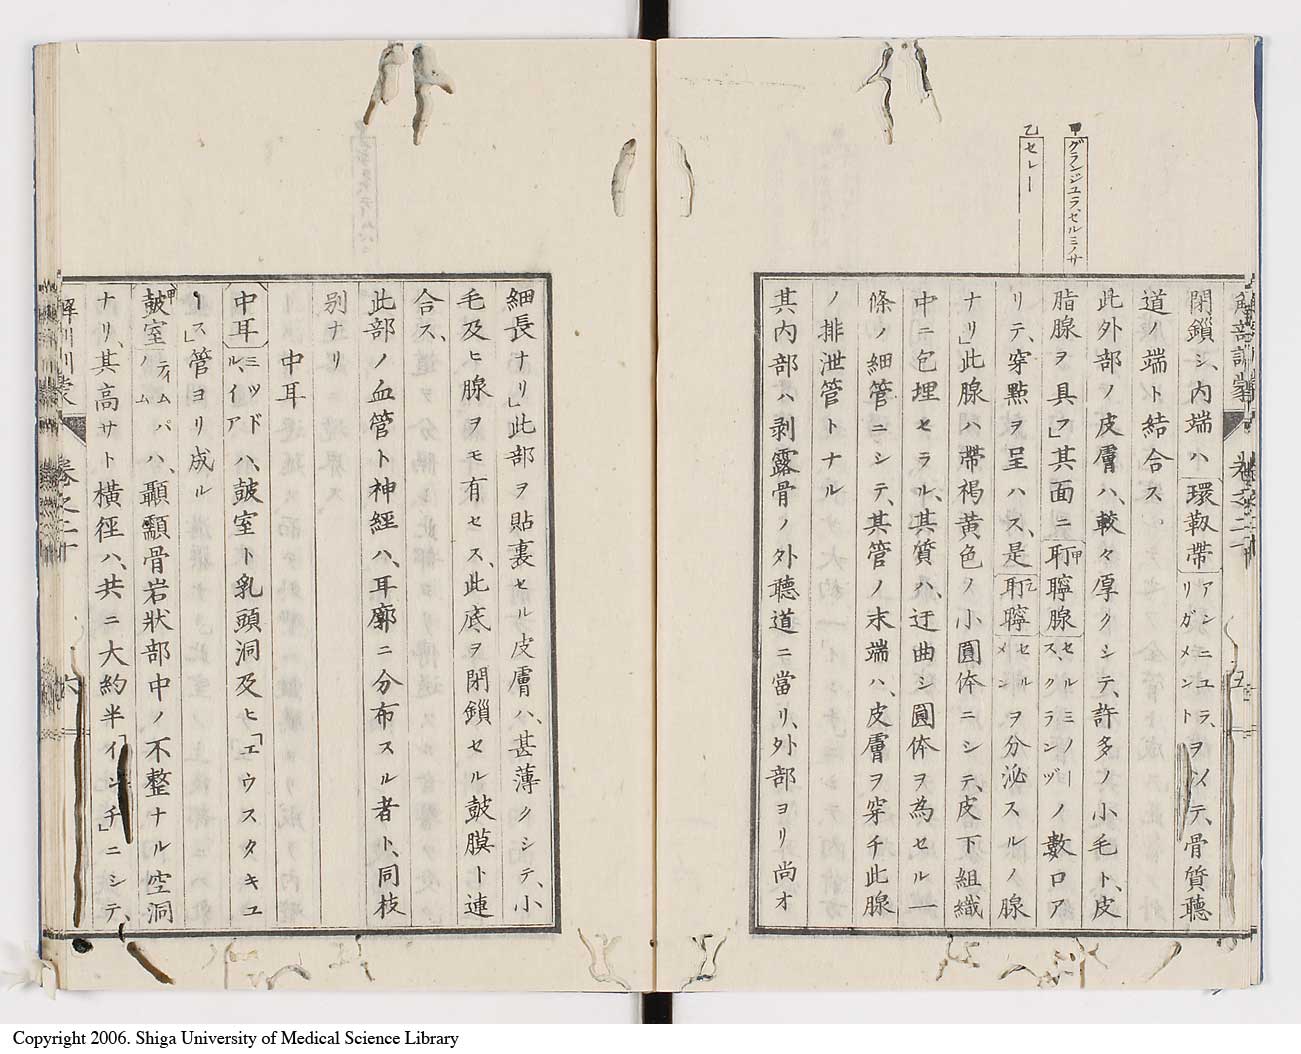 甲グランジユラ、セルミノサ
乙セレー
解剖訓蒙 卷之二十 五
閉鎖シ、内端ハ環靱帶アンニユラ、リガメントヲ以テ、骨質聽
道ノ端ト結合ス
此外部ノ皮膚ハ、較々厚クシテ、許多ノ小毛ト、皮
脂腺ヲ具フ」其面ニ甲耵聹腺セルミノースクランヅノ數口ア
リテ、穿點ヲ呈ハス、是乙耵聹セルメンヲ分泌スルノ腺
ナリ」此腺ハ帶褐黄色ノ小圓体ニシテ、皮下組織
中ニ包埋セラル、其質ハ、迂曲シ圓体ヲ為セル一
條ノ細管ニシテ、其管ノ末端ハ、皮膚ヲ穿チ此腺
ノ排泄管トナル
其内部ハ剥露骨ノ外聽道ニ當リ、外部ヨリ尚オ
細長ナリ」此部ヲ貼裏セル皮膚ハ、甚薄クシテ、小
毛及ヒ腺ヲモ有セス、此底ヲ閉鎖セル鼓膜ト連
合ス、
此部ノ血管ト神經ハ、耳廓ニ分布スル者ト、同枝
別ナリ
中耳
中耳ミツドル、イアハ、鼓室ト乳頭洞及ヒ「エウスタキユ
ース」管ヨリ成ル
甲鼓室ティムパノムハ、顳顬骨岩狀部中ノ不整ナル空洞
ナリ、其高サト橫徑ハ、共ニ大約半「インチ」ニシテ、
卷之二十 六
Copyright 2006. Shiga University of Medical Science Library